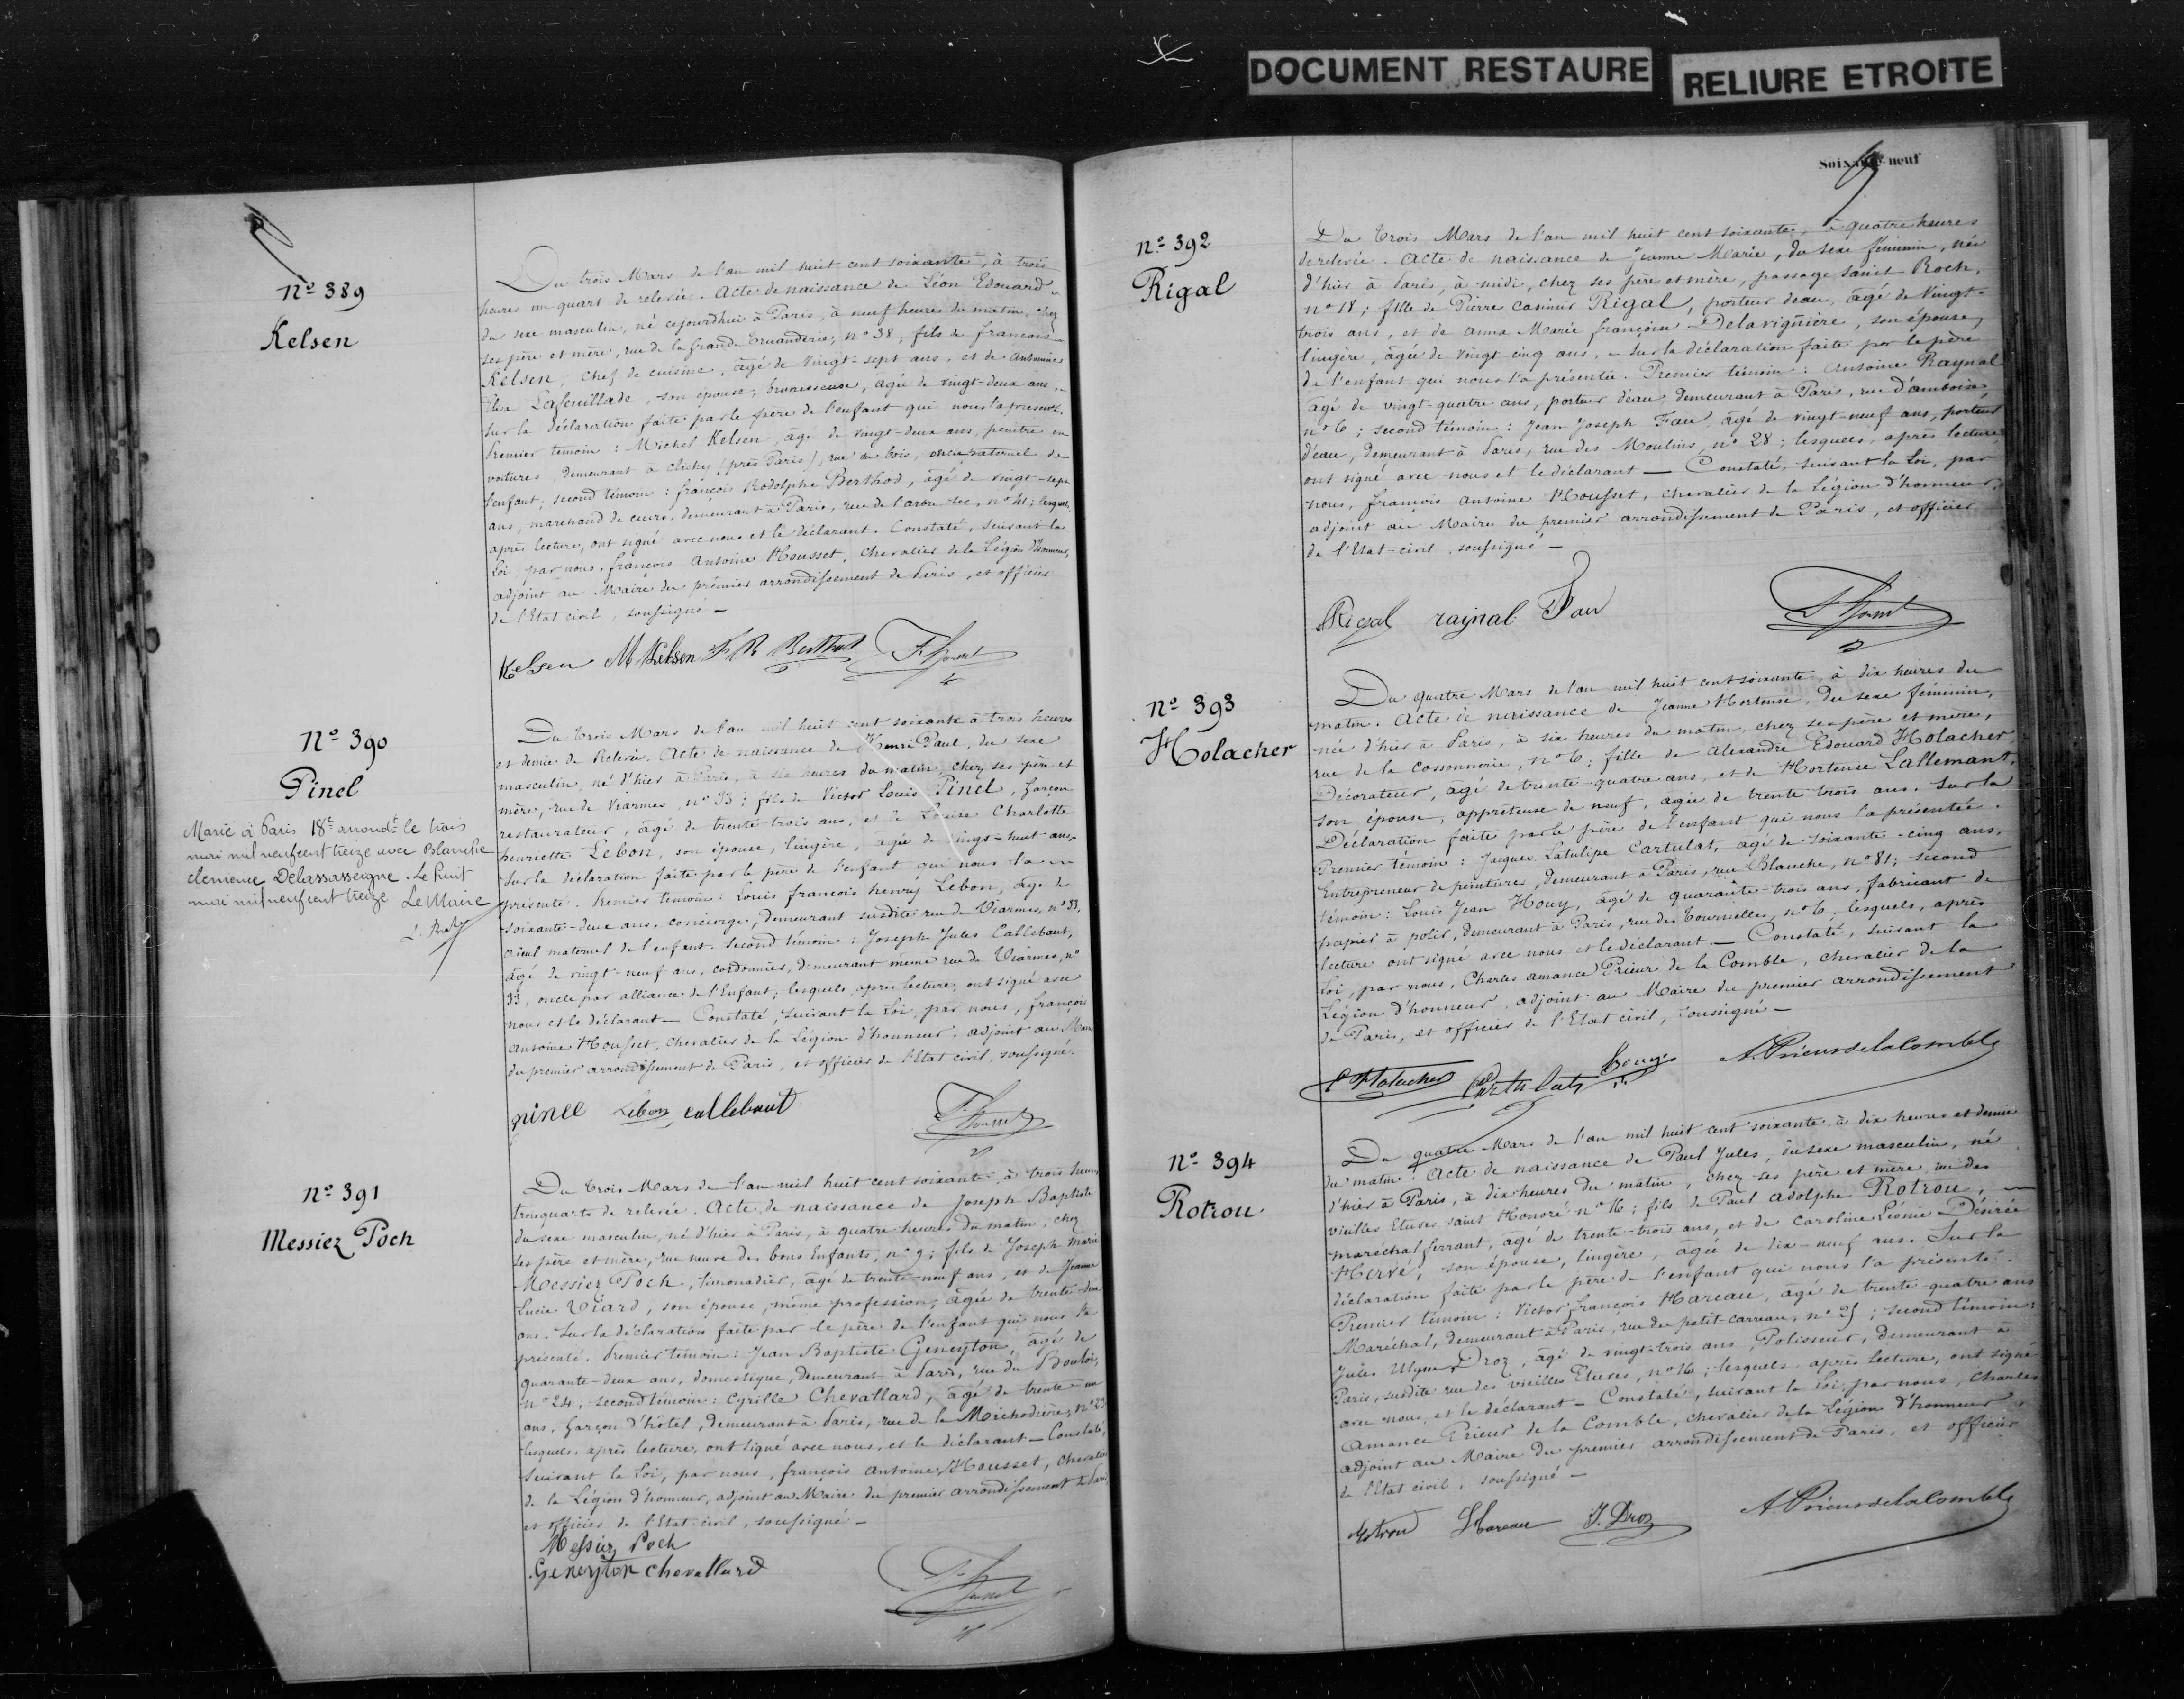 DOCUMENT RESTAURE
RELIURE ETROITE
Nº 389
Kelsen
Du trois Mars de l'an mil huit cent soixante, à trois
heures un quart de relevée. Acte de naissance de Léon Edouard
du sexe masculin, né cejourdhui à Paris, à neuf heures du matin, chez
ses père et mère, rue de la Grande Truanderie, nº 38; fils de françois
Kelsen, chef de cuisine, âgé de vingt-sept ans, et de Antoinie
Elisa Lafeuillade, son épouse, brunisseuse, âgée de vingt-deux ans,
sur la déclaration faite par le père de l'enfant qui nous l'a présenté.
Premier temoin: Michel Kelsen, âgé de vingt-deux ans, peintre en
voitures, demeurant à clichy (près Paris), rue du bois, oncle paternel de
l'enfant; second témoin: françois Rodolphe Berthod, âgé de vingt-sept
ans, marchand de cuirs, demeurant à Paris, rue de l'arbre sec, nº 41; lesquels,
après lecture, ont signé avec nous et le déclarant. Constaté, suivant la
Loi, par nous, françois Antoine Housset, chevalier de la Légion d'honneur,
adjoint au Maire du premier arrondissement de Paris, et officier
de l'Etat civil, soussigné —
Kelsen M Kelsen F R Berthod F. Housset
Nº 390
Pinel
Marié à Paris 18e arrondt le trois
mai mil neuf cent treize avec Blanche
clemence Delassasseigne. Le huit
mai mil neuf cent treize Le Maire
Du trois Mars de l'an mil huit cent soixante à trois heures
et demie de Relevée. Acte de naissance de Henri Paul, du sexe
masculin, né d'hier à Paris, à six heures du matin, chez ses père et
mère, rue de Viarmes, nº 33; fils de Victor Louis Pinel, garçon
restaurateur, âgé de trente-trois ans, et de Louise Charlotte
henriette Lebon, son épouse, lingère, âgée de vingt-huit ans,
Sur la déclaration faite par le père de l'enfant qui nous l'a
présenté. Premier temoin: Louis françois henry Lebon, âgé de
soixante-deux ans, concierge, demeurant susdite rue de Viarmes, nº 33,
aïeul maternel de l'enfant. Second témoin: Joseph Jules Callebaut,
âgé de vingt-neuf ans, cordonnier, demeurant même rue de Viarmes, nº
33, oncle par alliance de l'Enfant; lesquels, après lecture, ont signé avec
nous et le déclarant — Constaté, suivant la Loi, par nous, françois
Antoine Housset, chevalier de la Légion d'honneur, adjoint au Maire
du premier arrondissement de Paris, et officier de l'Etat civil, soussigné.
pinel Lebon callebaut F. Housset
Nº 391
Messiez Poch
Du trois Mars de l'an mil huit cent soixante, à trois heures
trois quarts de relevée. Acte de naissance de Joseph Baptiste
du sexe masculin, né d'hier à Paris, à quatre heures du matin, chez
ses père et mère, rue neuve des bons Enfants, nº 9; fils de Joseph Marie
Messiez Poch, limonadier, âgé de trente-neuf ans, et de Jeanne
Lucie Viard, son épouse, même profession, âgée de trente-deux
ans. Sur la déclaration faite par le père de l'enfant qui nous l'a
présenté. Premier témoin: Jean Baptiste Geneyton, âgé de
quarante-deux ans, domestique, demeurant à Paris, rue du Bouloi,
nº 24; second témoin: Cyrille Chevallard, âgé de trente-un
ans, Garçon d'hôtel, demeurant à Paris, rue de la Michodière, nº 23
lesquels, après lecture, ont signé avec nous, et le déclarant — Constaté,
suivant la Loi, par nous, françois Antoine Housset, chevalier
de la Légion d'honneur, adjoint au Maire du premier arrondissement de Paris
et officier de l'Etat civil, soussigné —
Messiez Poch
Geneyton chevallard
F. Housset
Soixante-neuf
Nº 392
Rigal
Du trois Mars de l'an mil huit cent soixante, à quatre heures
de relevée. Acte de naissance de Jeanne Marie, du sexe féminin, née
d'hier à Paris, à midi, chez ses père et mère, passage saint Roch,
nº 18; fille de Pierre casimir Rigal, porteur d'eau, âgé de Vingt-
trois ans, et de anna Marie françoise Delavignière, son épouse,
lingère, âgée de vingt cinq ans, — sur la déclaration faite par le père
de l'enfant qui nous l'a présentée. Premier témoin: Antoine Raynal
âgé de vingt-quatre ans, porteur d'eau, demeurant à Paris, rue d'amboise
nº 6; second témoin: Jean Joseph Fau, âgé de vingt-neuf ans, porteur
d'eau, demeurant à Paris, rue des Moulins, nº 28; lesquels, après lecture
ont signé avec nous et le déclarant — Constaté, suivant la Loi, par
nous, françois Antoine Housset, chevalier de la Légion d'honneur,
adjoint au Maire du premier arrondissement de Paris, et officier
de l'Etat-civil, soussigné —
Rigal raynal Fau F. Housset
Nº 393
Holacher
Du quatre Mars de l'an mil huit cent soixante, à dix heures du
matin. Acte de naissance de Jeanne Hortense, du sexe féminin,
née d'hier à Paris, à six heures du matin, chez ses père et mère,
rue de la Cossonnerie, nº 6; fille de Alexandre Edouard Holacher
Décorateur, âgé de trente quatre ans, et de Hortense Lallemant,
son épouse, apprêteuse de neuf, âgée de trente trois ans. Sur la
Déclaration faite par le père de l'enfant qui nous l'a présentée.
Premier témoin: Jacques Latulipe Cartulat, âgé de soixante-cinq ans,
Entrepreneur de peintures, demeurant à Paris, rue Blanche, nº 81; second
témoin: Louis Jean Houy, âgé de quarante-trois ans, fabricant de
papier à polir, demeurant à Paris, rue des Tournelles, nº 6, lesquels, après
lecture ont signé avec nous et le déclarant — Constaté, suivant la
Loi, par nous, Charles amance Prieur de la Comble, chevalier de la
Légion d'honneur, adjoint au Maire du premier arrondissement
de Paris, et officier de l'Etat civil, soussigné —
E Holacher Cartulat houy A. Prieur de la Comble
Nº 394
Rotrou
Du quatre Mars de l'an mil huit cent soixante, à dix heures et demie
du matin. Acte de naissance de Paul Jules, du sexe masculin, né
d'hier à Paris, à dix heures du matin, chez ses père et mère, rue des
vieilles Etuves saint Honoré nº 16; fils de Paul Adolphe Rotrou,
maréchal ferrant, âgé de trente-trois ans, et de Caroline Léonie Désirée
Hervé, son épouse, lingère, âgée de dix-neuf ans. Sur la
déclaration faite par le père de l'enfant qui nous l'a présenté.
Premier témoin: Victor françois Hareau, âgé de trente quatre ans
Maréchal, demeurant à Paris, rue du petit-carreau, nº 25; second témoin:
Jules Ulysse Droz, âgé de vingt-trois ans, Polisseur, demeurant à
Paris, susdite rue des vieilles Etuves, nº 16; lesquels, après lecture, ont signé
avec nous, et le déclarant — Constaté, suivant la Loi, par nous, Charles
Amance Prieur de la Comble, chevalier de la Légion d'honneur
adjoint au Maire du premier arrondissement de Paris, et officier
de l'Etat civil, soussigné —
Rotrou Hareau J. Droz A. Prieur de la Comble